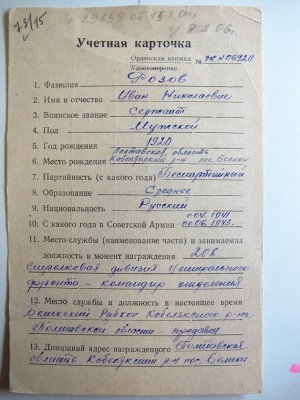 73/15
Учетная карточка
Орденская книжка
Удостоверение
№
1. Фамилия Розов
2. Имя и отчество Иван Николаевич
3. Воинское звание Сержант
4. Пол Мужской
5. Год рождения 1920
Полтавская область
6. Место рождения Кобелякский р-н пос.
7. Партийность (с какого года) Беспартийный
8. Образование Среднее
9. Национальность Русский
10. С какого года в Советской Армии с 04.1941 по 06.1943.
11. Место службы (наименование части) и занимаемая
должность к моменту награждения 208
стрелковая дивизия Центрального
фронта - командир отделения
12. Место службы и должность в настоящее время
Кобелякского р-на
Полтавской области - продавец
13. Домашний адрес награжденного Полтавская
область Кобелякский р-н пос.